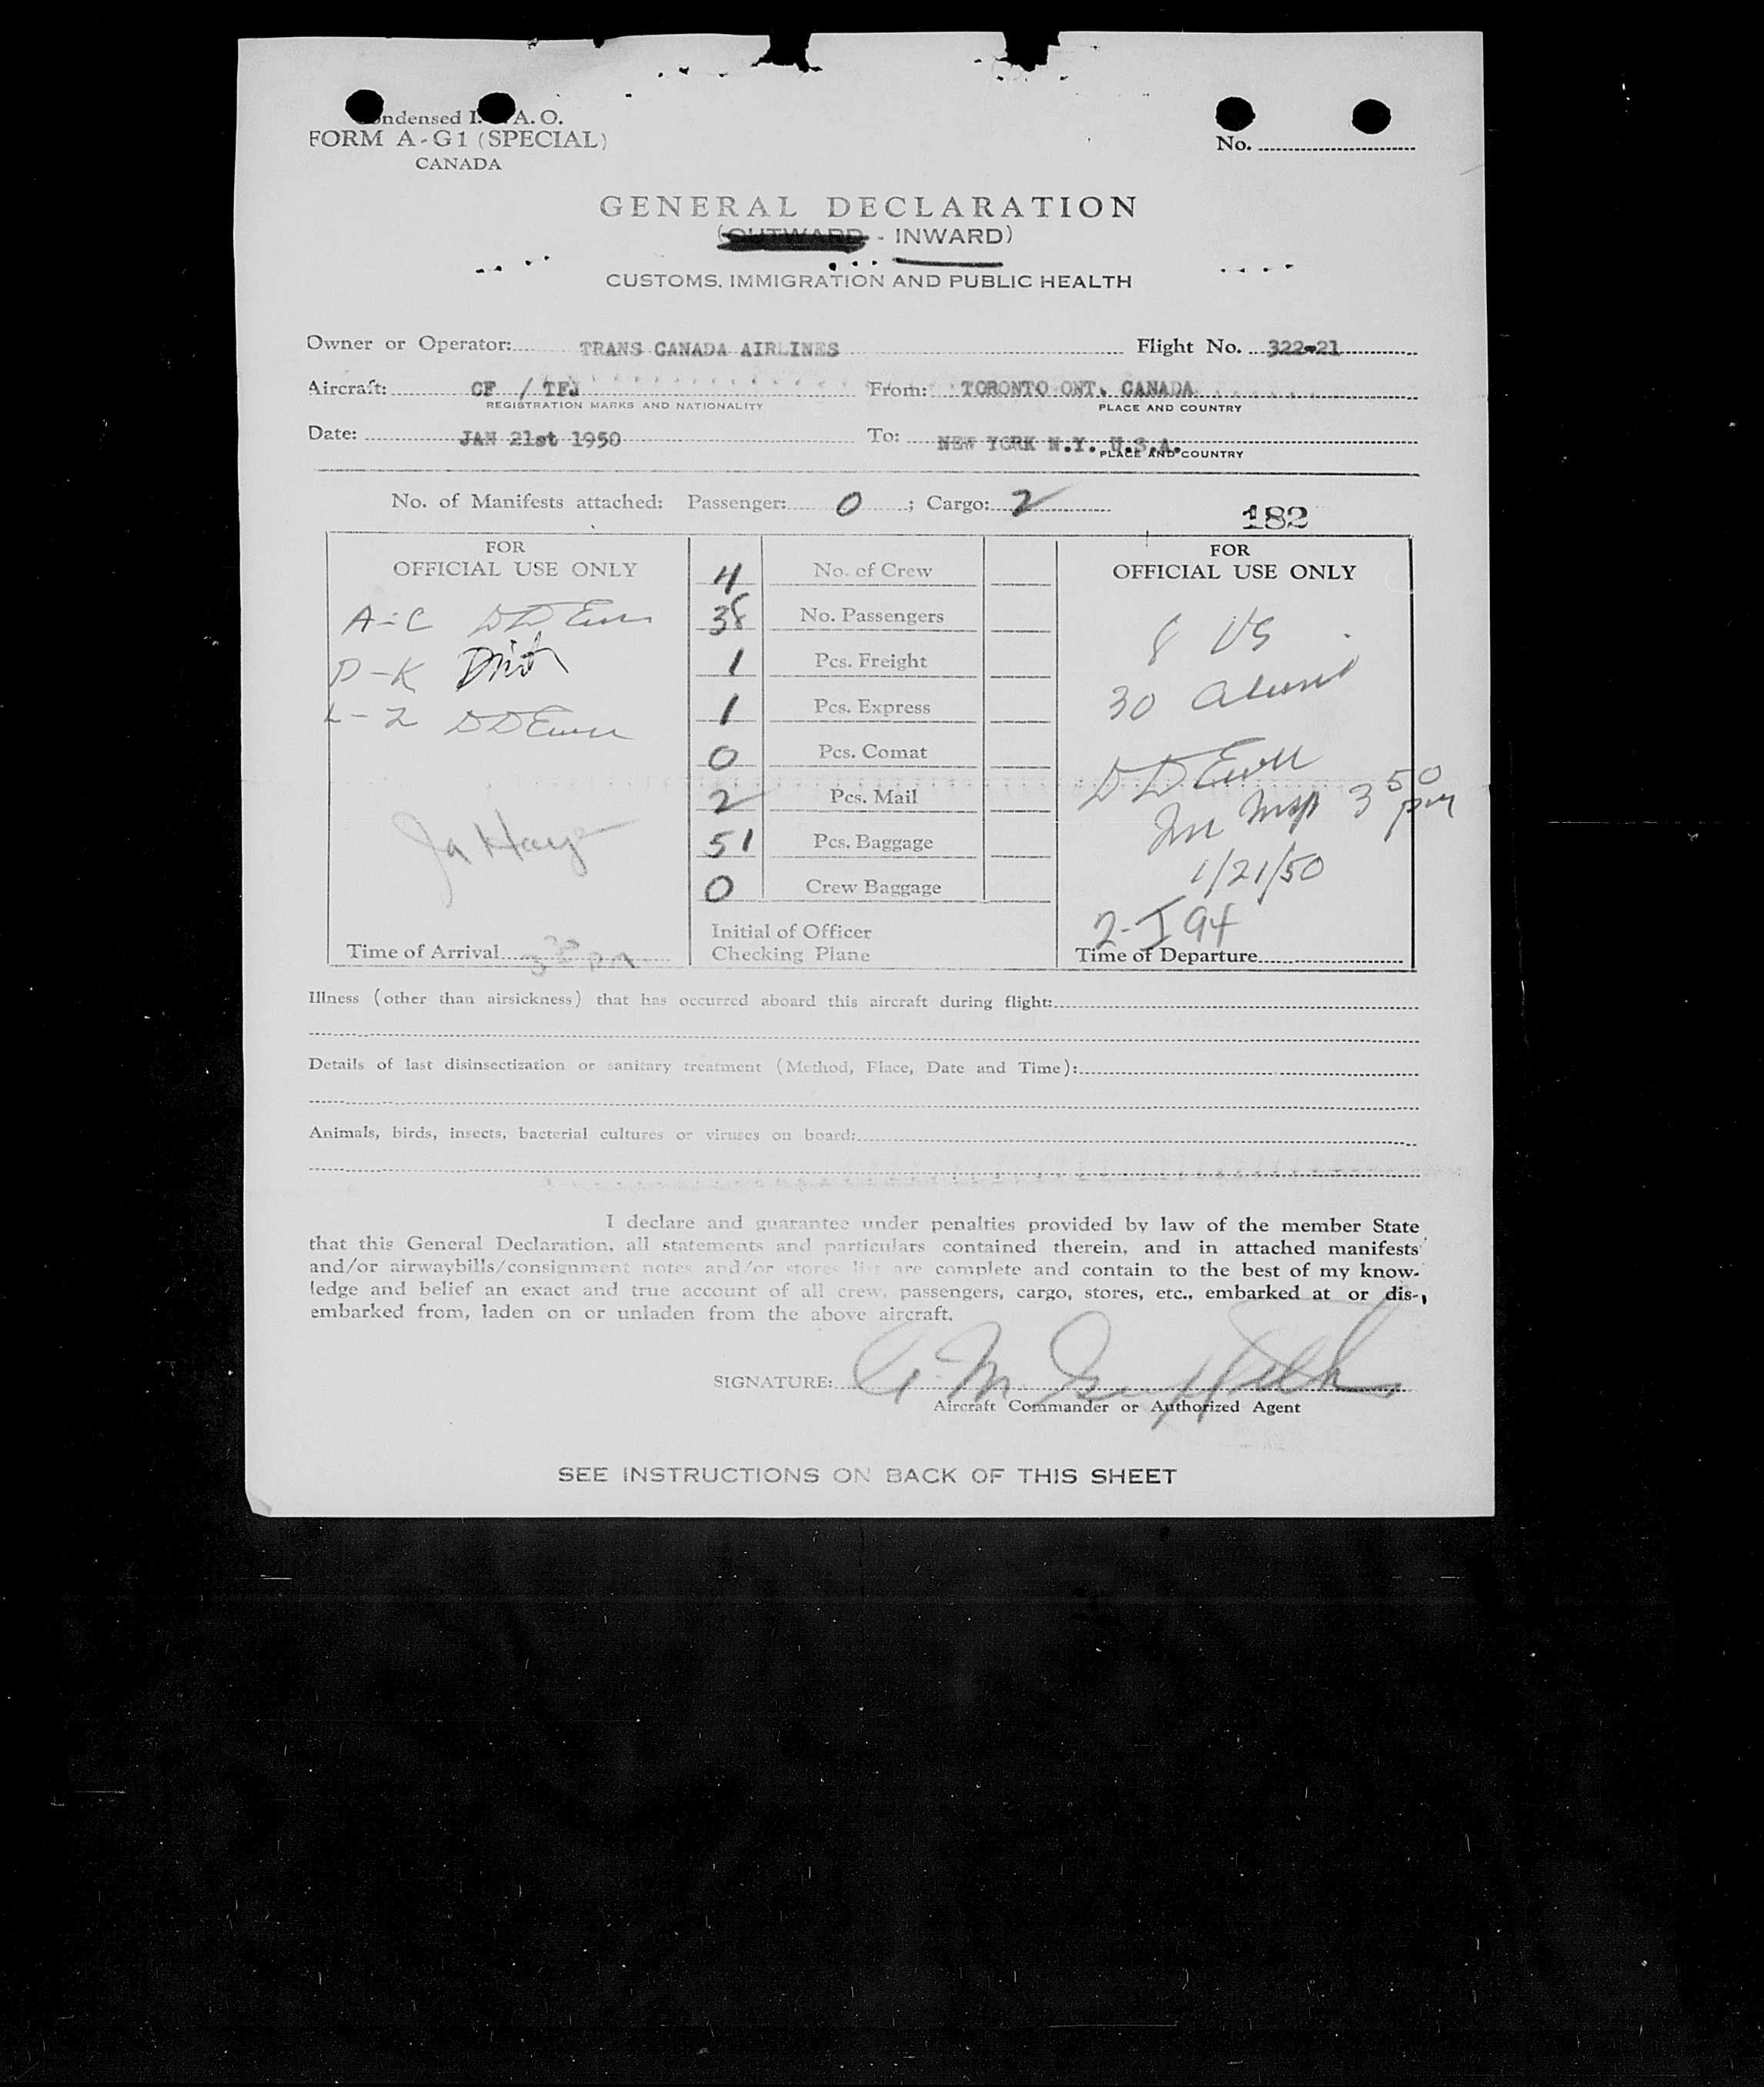 ndensed I. A. O.
FORM A-G1 (SPECIAL)
CANADA
No.
GENERAL DECLARATION
(OUTWARD - INWARD)
CUSTOMS, IMMIGRATION AND PUBLIC HEALTH
Owner or Operator: TRANS CANADA AIRLINES Flight No. 322-21
Aircraft: CF / TFJ From: TORONTO ONT. CANADA
REGISTRATION MARKS AND NATIONALITY PLACE AND COUNTRY
Date: JAN 21st 1950 To: NEW YORK N.Y. U.S.A.
PLACE AND COUNTRY
No. of Manifests attached: Passenger: 0 ; Cargo: 2
182
FOR
OFFICIAL USE ONLY
A-C D D
D-K
L-Z D D
Time of Arrival 3 30 p.m.
4 No. of Crew
38 No. Passengers
1 Pcs. Freight
1 Pcs. Express
0 Pcs. Comat
2 Pcs. Mail
51 Pcs. Baggage
0 Crew Baggage
Initial of Officer
Checking Plane
FOR
OFFICIAL USE ONLY
8 US
30 Aliens
D D
Im Insp 3 50 pm
1/21/50
2-I 94
Time of Departure
Illness (other than airsickness) that has occurred aboard this aircraft during flight:
Details of last disinsectization or sanitary treatment (Method, Place, Date and Time):
Animals, birds, insects, bacterial cultures or viruses on board:
I declare and guarantee under penalties provided by law of the member State
that this General Declaration, all statements and particulars contained therein, and in attached manifests
and/or airwaybills/consignment notes and/or stores list are complete and contain to the best of my know-
ledge and belief an exact and true account of all crew, passengers, cargo, stores, etc., embarked at or dis-
embarked from, laden on or unladen from the above aircraft.
SIGNATURE: G. M.
Aircraft Commander or Authorized Agent
SEE INSTRUCTIONS ON BACK OF THIS SHEET